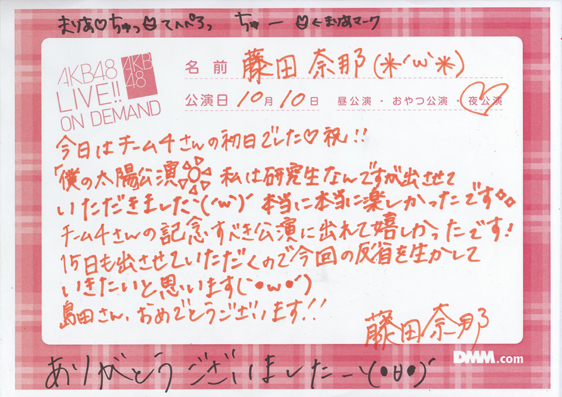 まりあ♡ちゅっ てへぺろっ ちゅー ←まりあマーク
AKB48
LIVE!!
ON DEMAND
AKB
48
名前 藤田 奈那(*'ω'*)
公演日 10月10日 昼公演・おやつ公演・夜公演
今日はチーム4さんの初日でした♡祝!!
「僕の太陽公演」私は研究生なんですが出させて
いただきました`(´ω`)´ 本当に本当に楽しかったです。
チーム4さんの記念すべき公演に出れて嬉しかったです!
15日も出させていただくので今回の反省を生かして
いきたいと思います(`・ω・´)
島田さん、おめでとうございます!!
藤田奈那
DMM.com
ありがとうございましたー`(・θ・)´